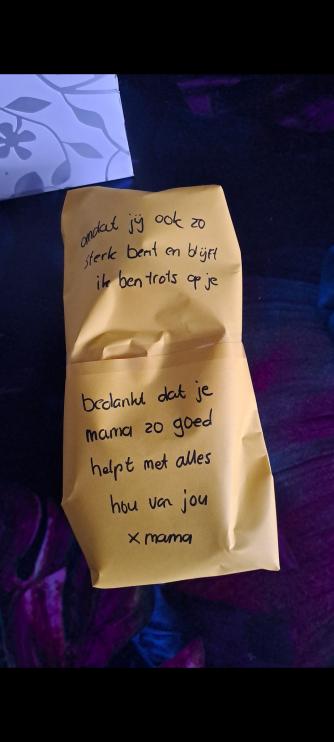 omdat jij ook zo
sterk bent en blijft
ik ben trots op je
bedankt dat je
mama zo goed
helpt met alles
hou van jou
x mama